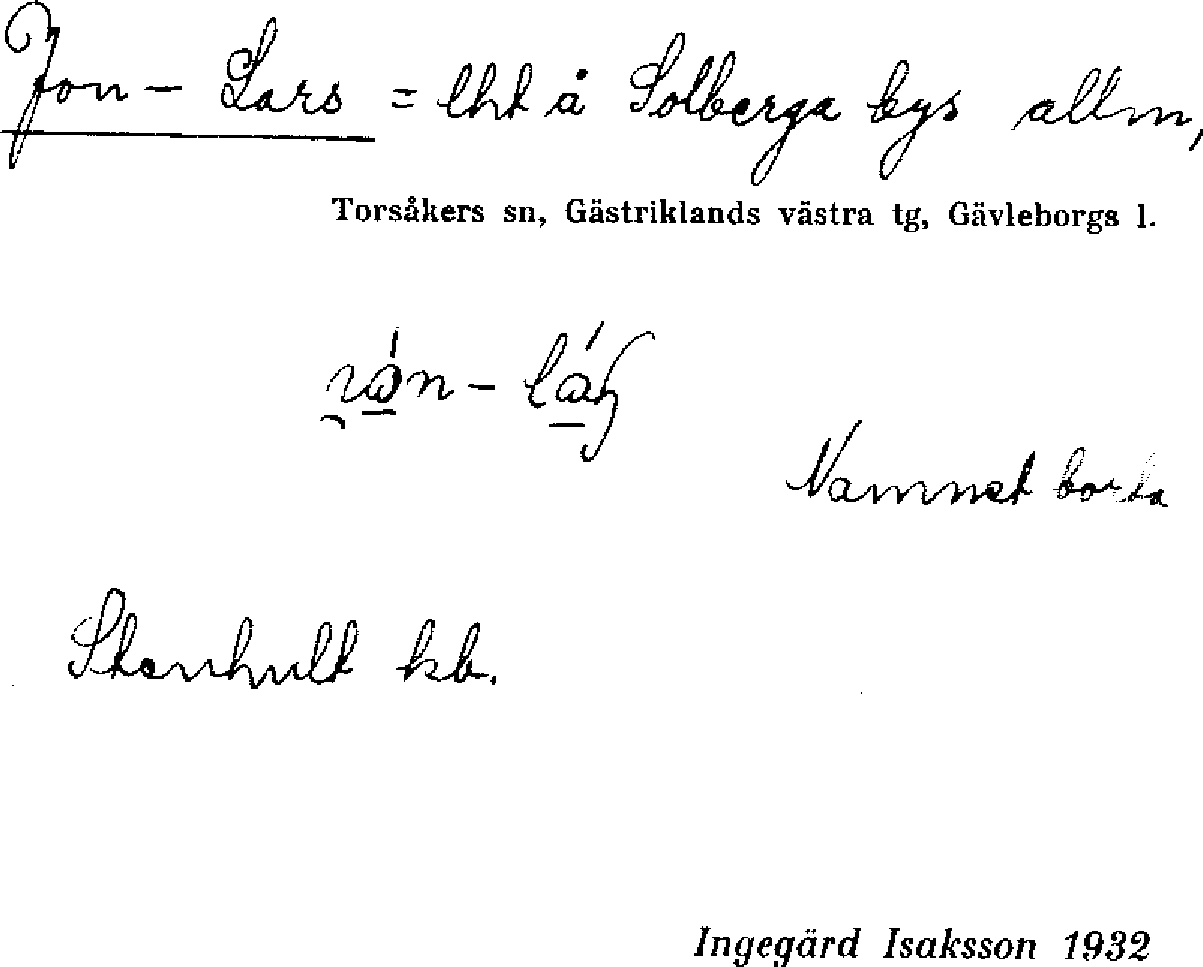 Jon- Lars = lht å Solberga bys allm,
Torsåkers sn, Gästriklands västra tg, Gävleborgs l.
Namnet borta
Stenhult kb.
Ingegärd Isaksson 1932